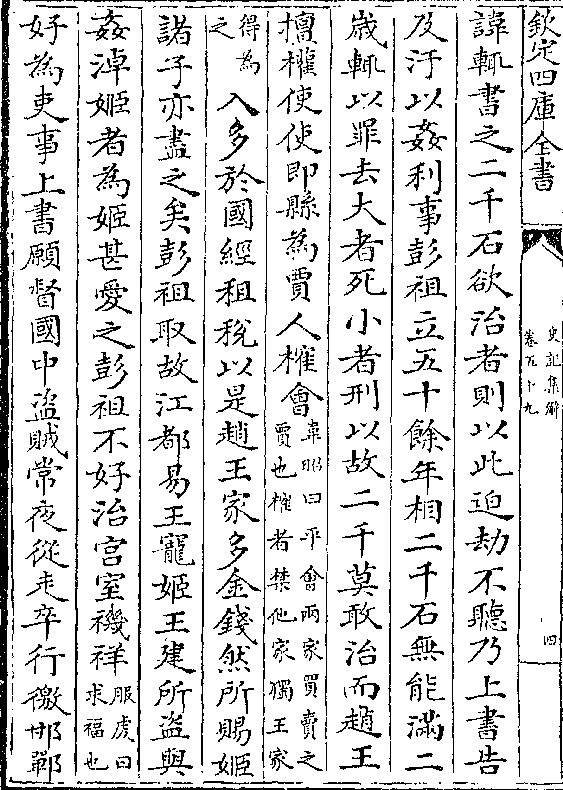 欽定四庫全書
史記集解
卷五十九
四
諱輒書之二千石欲治者則以此迫劫不聽乃上書告
及汙以姦利事彭祖立五十餘年相二千石無能滿二
歳輒以罪去大者死小者刑以故二千莫敢治而趙王
擅權使使即縣為賈人榷會韋昭曰平會兩家買賣之賈也榷者禁他家獨王家
得為之入多於國經租稅以是趙王家多金錢然所賜姬
諸子亦盡之矣彭祖取故江都易王寵姬王建所盜與
姦淖姬者為姬甚愛之彭祖不好治宫室禨祥服虔曰求福也
好為吏事上書願督國中盜賊常夜從走卒行徼邯鄲